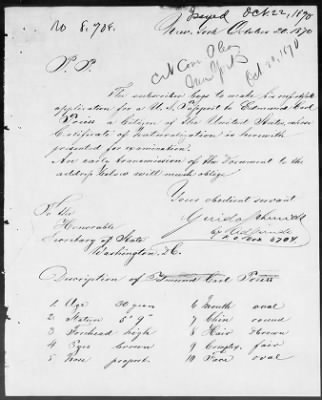 Issued Oct. 22, 1870
No 8,908.
New York October 20. 1870
Oct. 22, 1870
The subscriber begs to make an
application for a U.S. Passport to Edmund Emil
a Citizen of the United States, whose
Certificate of Naturalization is herewith
presented for examination.
An early transmission of the Document to the
address below will much oblige
Your obedient servant
To the
Honorable
Secretary of State
Washington, D.C.
P.O. Box 6704
Description of
1 Age 30 years 6 Mouth oval
2 Stature 5" 9" 7 Chin round
3 Forehead high 8 Hair Brown
4 Eyes brown 9 Complex. fair
5 Nose proport. 10 Face oval